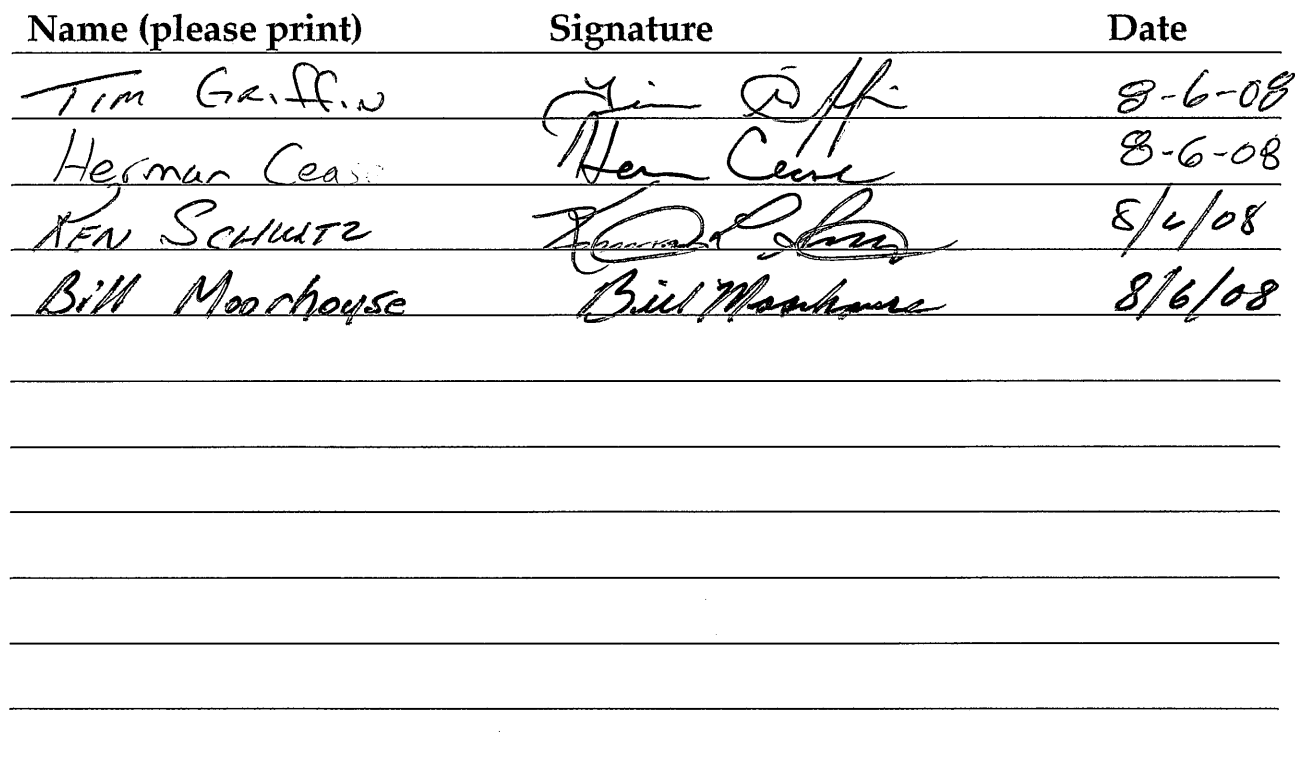 Name (please print) Signature Date
Tim Griffin Tim Griffin 8-6-08
Herman Cease Herm Cease 8-6-08
KEN SCHULTZ 8/6/08
Bill Moorhouse Bill Moorhouse 8/6/08